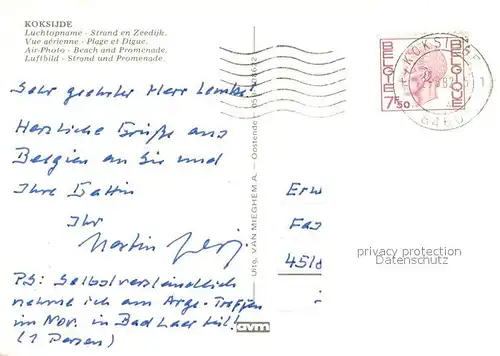 KOKSIJDE
Luchtopname - Strand en Zeedijk.
Vue aérienne - Plage et Digue.
Air-Photo - Beach and Promenade.
Luftbild - Strund und Promenade.
Sehr geehrter Herr Lembke!
Herzliche Grüße aus
Belgien an Sie und
Ihre Gattin
Ihr
Martin
PS: Selbstverständlich
nehme ich am Arge-Treffen
im Nov. in Bad Laer teil!
(1 Person)
Uitg. VAN MIEGHEM A. - Oostende
avm
KOKSIJDE
8460
BELGIE BELGIQUE
7F50
Erw
Fas
4518
privacy protection
Datenschutz